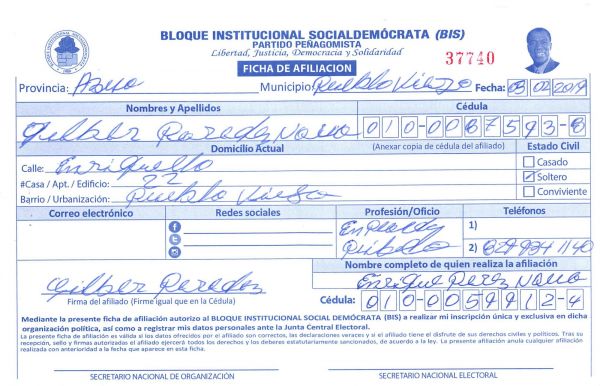 BLOQUE INSTITUCIONAL SOCIALDEMÓCRATA (BIS)
PARTIDO PEÑAGOMISTA
Libertad, Justicia, Democracia y Solidaridad
37740
FICHA DE AFILIACION
Provincia: Azua Municipio: Pueblo Viejo Fecha: 03/02/2019
Nombres y Apellidos Cédula
Gilber Paredez Novo 010-0067593-8
Domicilio Actual (Anexar copia de cédula del afiliado) Estado Civil
Calle: Enriquillo Casado
#Casa / Apt. / Edificio: 22 Soltero
Barrio / Urbanización: Pueblo Viejo Conviviente
Correo electrónico Redes sociales Profesión/Oficio Teléfonos
1)
2) 829 934 1140
Nombre completo de quien realiza la afiliación
Gilber Paredez Enrique Perez
Firma del afiliado (Firme igual que en la Cédula) Cédula: 010-0059912-4
Mediante la presente ficha de afiliación autorizo al BLOQUE INSTITUCIONAL SOCIAL DEMÓCRATA (BIS) a realizar mi inscripción única y exclusiva en dicha
organización política, así como a registrar mis datos personales ante la Junta Central Electoral.
La presente ficha de afiliación es válida si los datos ofrecidos por el afiliado son correctos, las declaraciones veraces y si el afiliado tiene el disfrute de sus derechos civiles y políticos. Tras su
recepción, sello y firmas autorizadas el afiliado ejercerá todos los derechos y los deberes estatutariamente sancionados, de acuerdo a la ley. La presente afiliación anula cualquier afiliación
realizada con anterioridad a la fecha que aparece en esta ficha.
SECRETARIO NACIONAL DE ORGANIZACIÓN SECRETARIO NACIONAL ELECTORAL